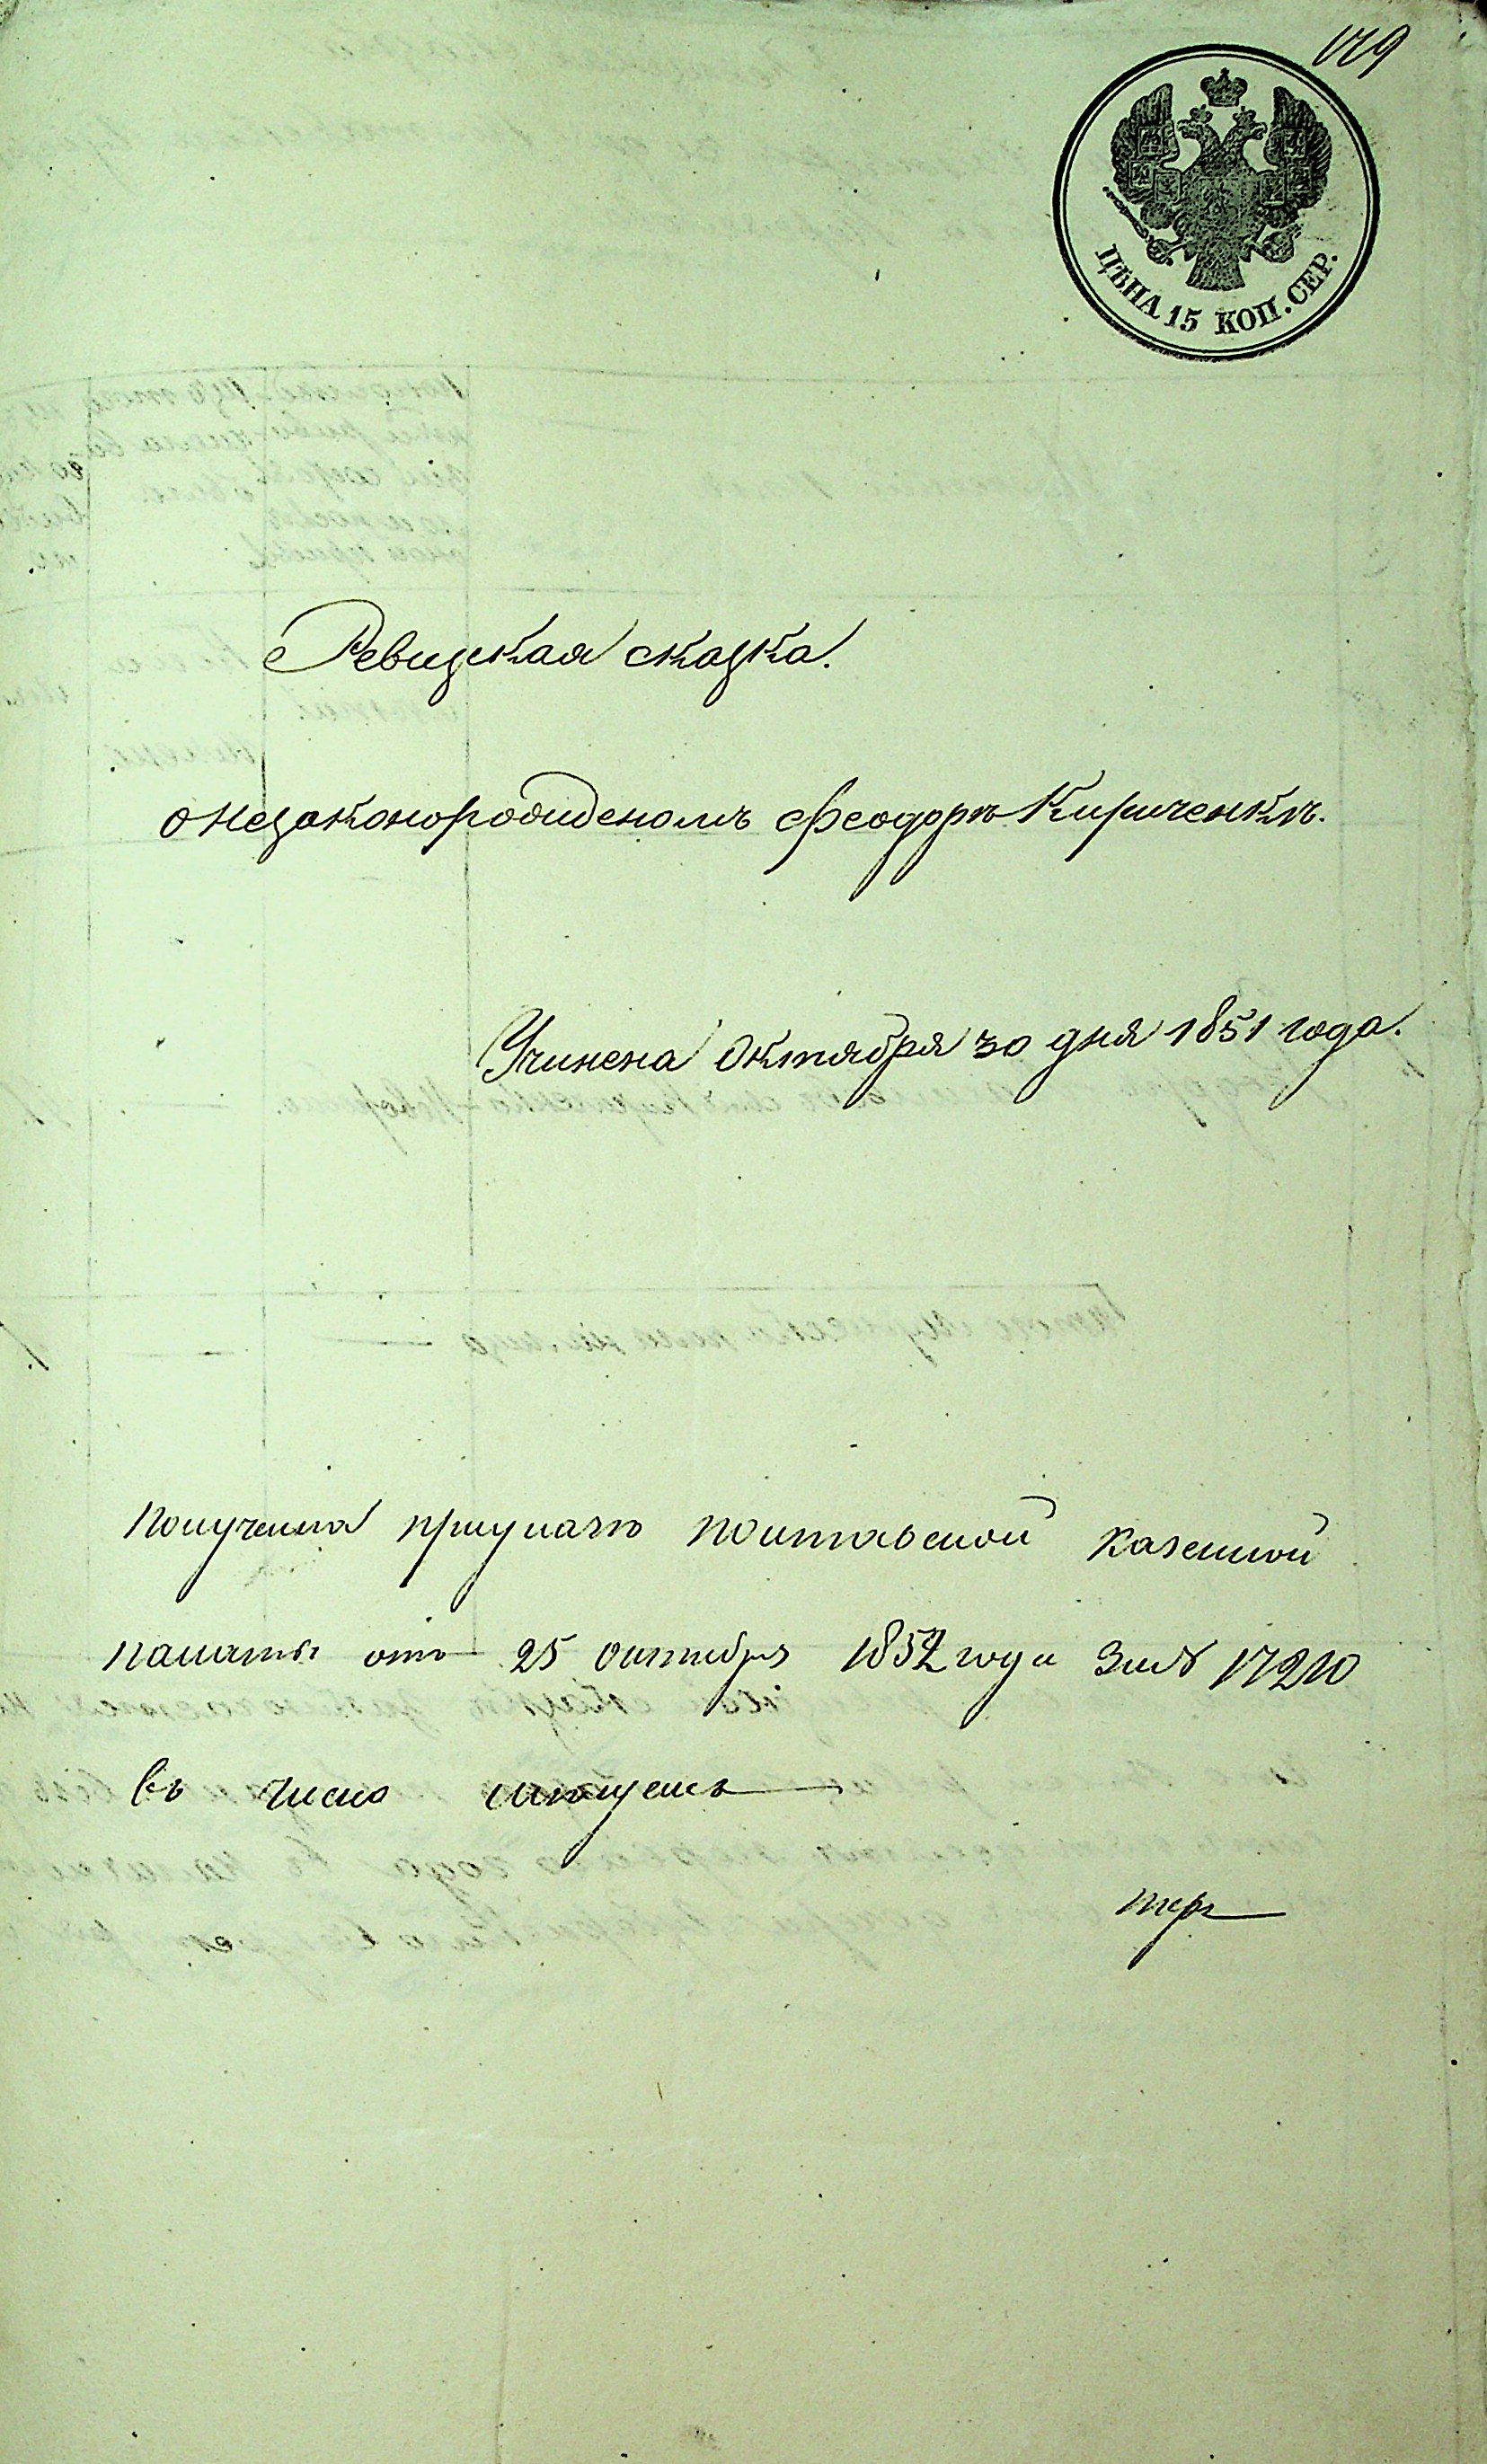 179
ЦѢНА 15 КОП. СЕР.
Ревизская сказка.
о незаконорожденомъ Феодорѣ Кириченкѣ.
Учинена Октября 30 дня 1851 года.
Получена при указѣ Полтавской Казенной
Палаты отъ 25 октября 1852 года За № 17210
въ число